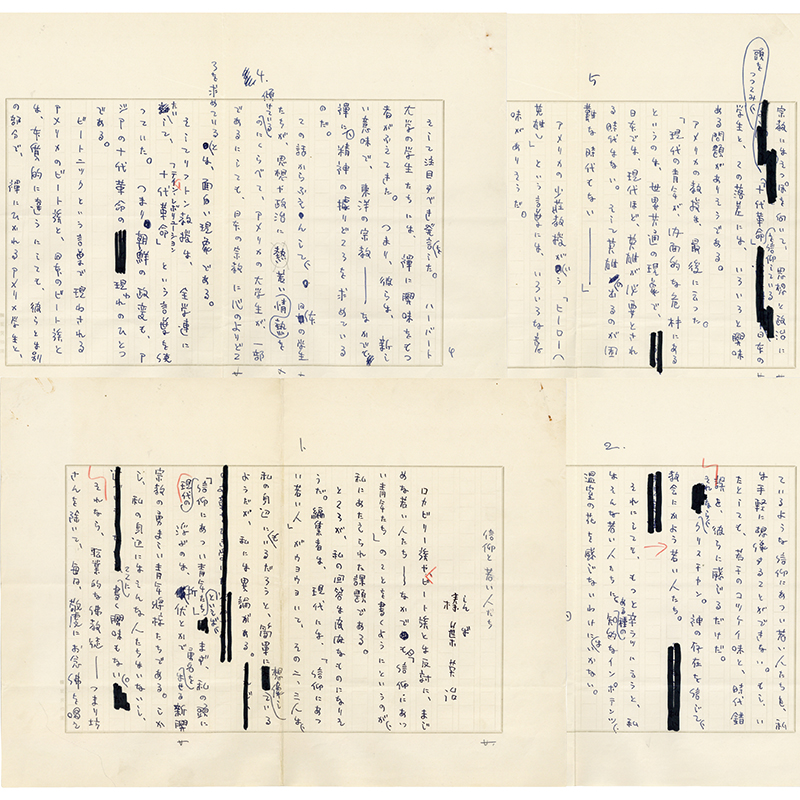 1.
信仰と若い人たち
榛葉英治
しんば
ロカビリー族やビート族とは反対に、まじ
めな若い人たち——なかでも「信仰にあつ
い青年たち」のことを書くようにというのが、
私にあたえられた課題である。
ところが、私の回答は皮肉なものになりそ
うだ。編集者は、現代には、「信仰にあつ
い若い人」がウヨウヨいて、その二、三人は
私の身辺にいるだろうと、簡単に想像している
ようだが、私には異論がある。
「信仰にあつい青年たち」といえば、まず、私の頭に
浮ぶのは、折伏とかで勇名を馳せる新興
現代の
宗教の勇ましい青年将校たちである。しか
し、私の身辺にはそんな人たちはいないし、
書く興味もない。
それなら、伝統的な佛教徒——つまり坊
さんを除いて、毎日、敬虔にお念佛を唱え
2.
ているような信仰にあつい若い人たちを、私
は手軽に想像することができない。もし、い
たとしても、若干のコッケイ味と、時代錯
誤を、彼らに感じるだけだ。
それなら、クリスチャン。神の存在を信じて
教会にかよう若い人たち。
それにしても、もっと辛ラツになると、私
はそんな若い人たちに、ある種の「知的なインポテンツ」
温室の花を感じないわけにいかない。
4.
そして注目すべき発言だった。ハーバート
大学の学生たちには、禅に興味をもつ
者がふえてきた。つまり、彼らは、新し
い意味で、東洋の宗教——なかでも
禅に精神の據りどころを求めている
のだ。
この話からぶそんして、日本の学生
たちが、思想や政治に熱っぽい情熱を
傾けているのにくらべて、アメリカの大学生が、一部
であるにしても、日本の宗教に心のよりどこ
ろを求めているとは、面白い現象である。
そしてリフトン教授は、全学連に
たいして、「十代革命」という言葉を使
ティーン・レボリューション
っていた。つまり、朝鮮の政変も、ア
ジアの十代革命の現われのひとつ
である。
ビートニックという言葉で現わされる
アメリカのビート族と、日本のビート族と
は、本質的に違うにしても、彼らとは別
の部分で、禅にひかれるアメリカ学生と、
5
頭をつっこみ
宗教にはそっぽを向いて、思想と政治に
「十代革命」を信仰している日本の
学生と、この落差には、いろいろと興味
ある問題がありそうである。
アメリカの教授は、最後に言った。
「現代の青年が、内面的な危機にある
というのは、世界共通の現象で、
日本では、現代ほど、英雄が必要とされ
る時代はない。そして英雄が出るのが困
難な時代もない——」
アメリカの少壮教授がいう「ヒーロー(
英雄)」という言葉には、いろいろな意
味がありそうだ。